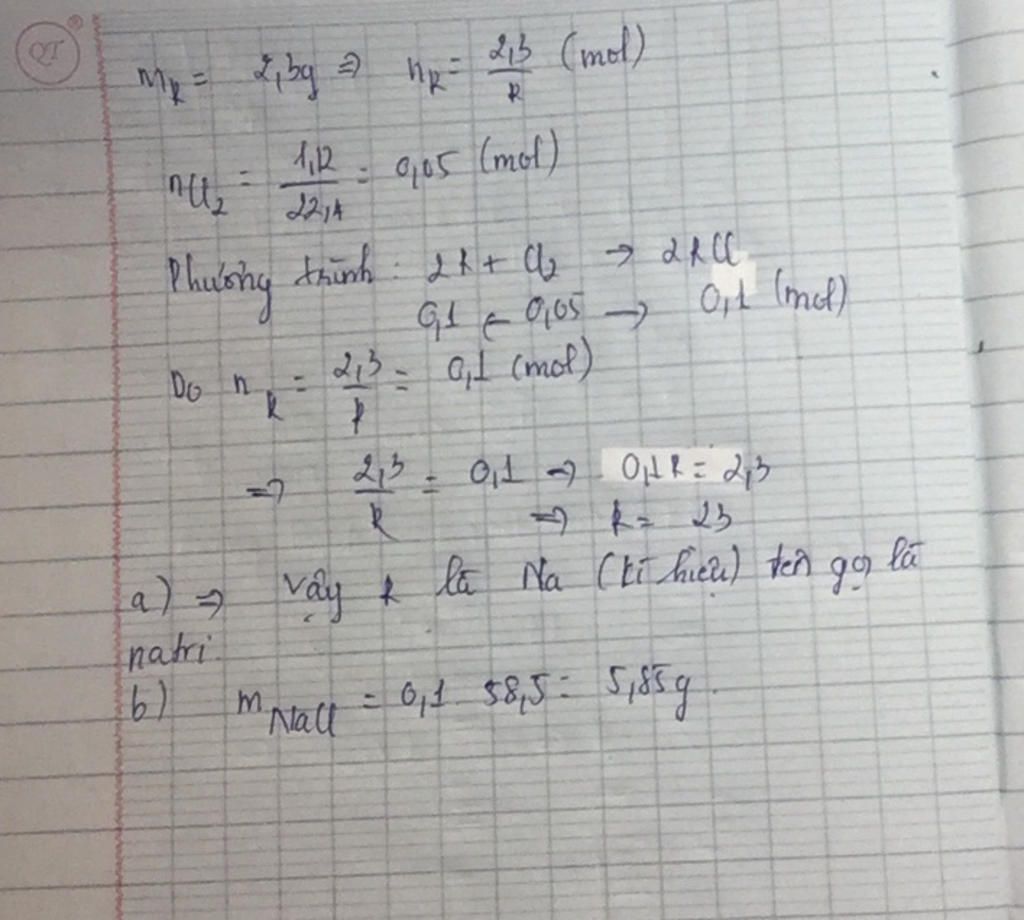 QT
m_R = 2,3g ⇒ n_R = 2,3/R (mol)
n_Cl₂ = 1,12/22,4 = 0,05 (mol)
Phương trình: 2R + Cl₂ → 2RCl
0,1 ← 0,05 → 0,1 (mol)
Do n_R = 2,3/R = 0,1 (mol)
⇒ 2,3/R = 0,1 ⇒ 0,1R = 2,3
⇒ R = 23
a) ⇒ Vậy R là Na (kí hiệu) tên gọi là
natri.
b) m_NaCl = 0,1 58,5 = 5,85g.